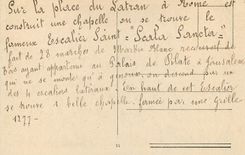 Sur la place du Latran à Rome est
construit une chapelle où se trouve le
fameux Escalier Saint "Scala Sancta"
fait de 28 marches de Marbre blanc recouvert de
bois ayant appartenu au Palais de Pilate à Jérusalem
qui ne se monte qu'à genoux on descend par un
des 4 escaliers latéraux. En haut de cet Escalier
se trouve 1 belle chapelle fermée par une Grille
1277 -